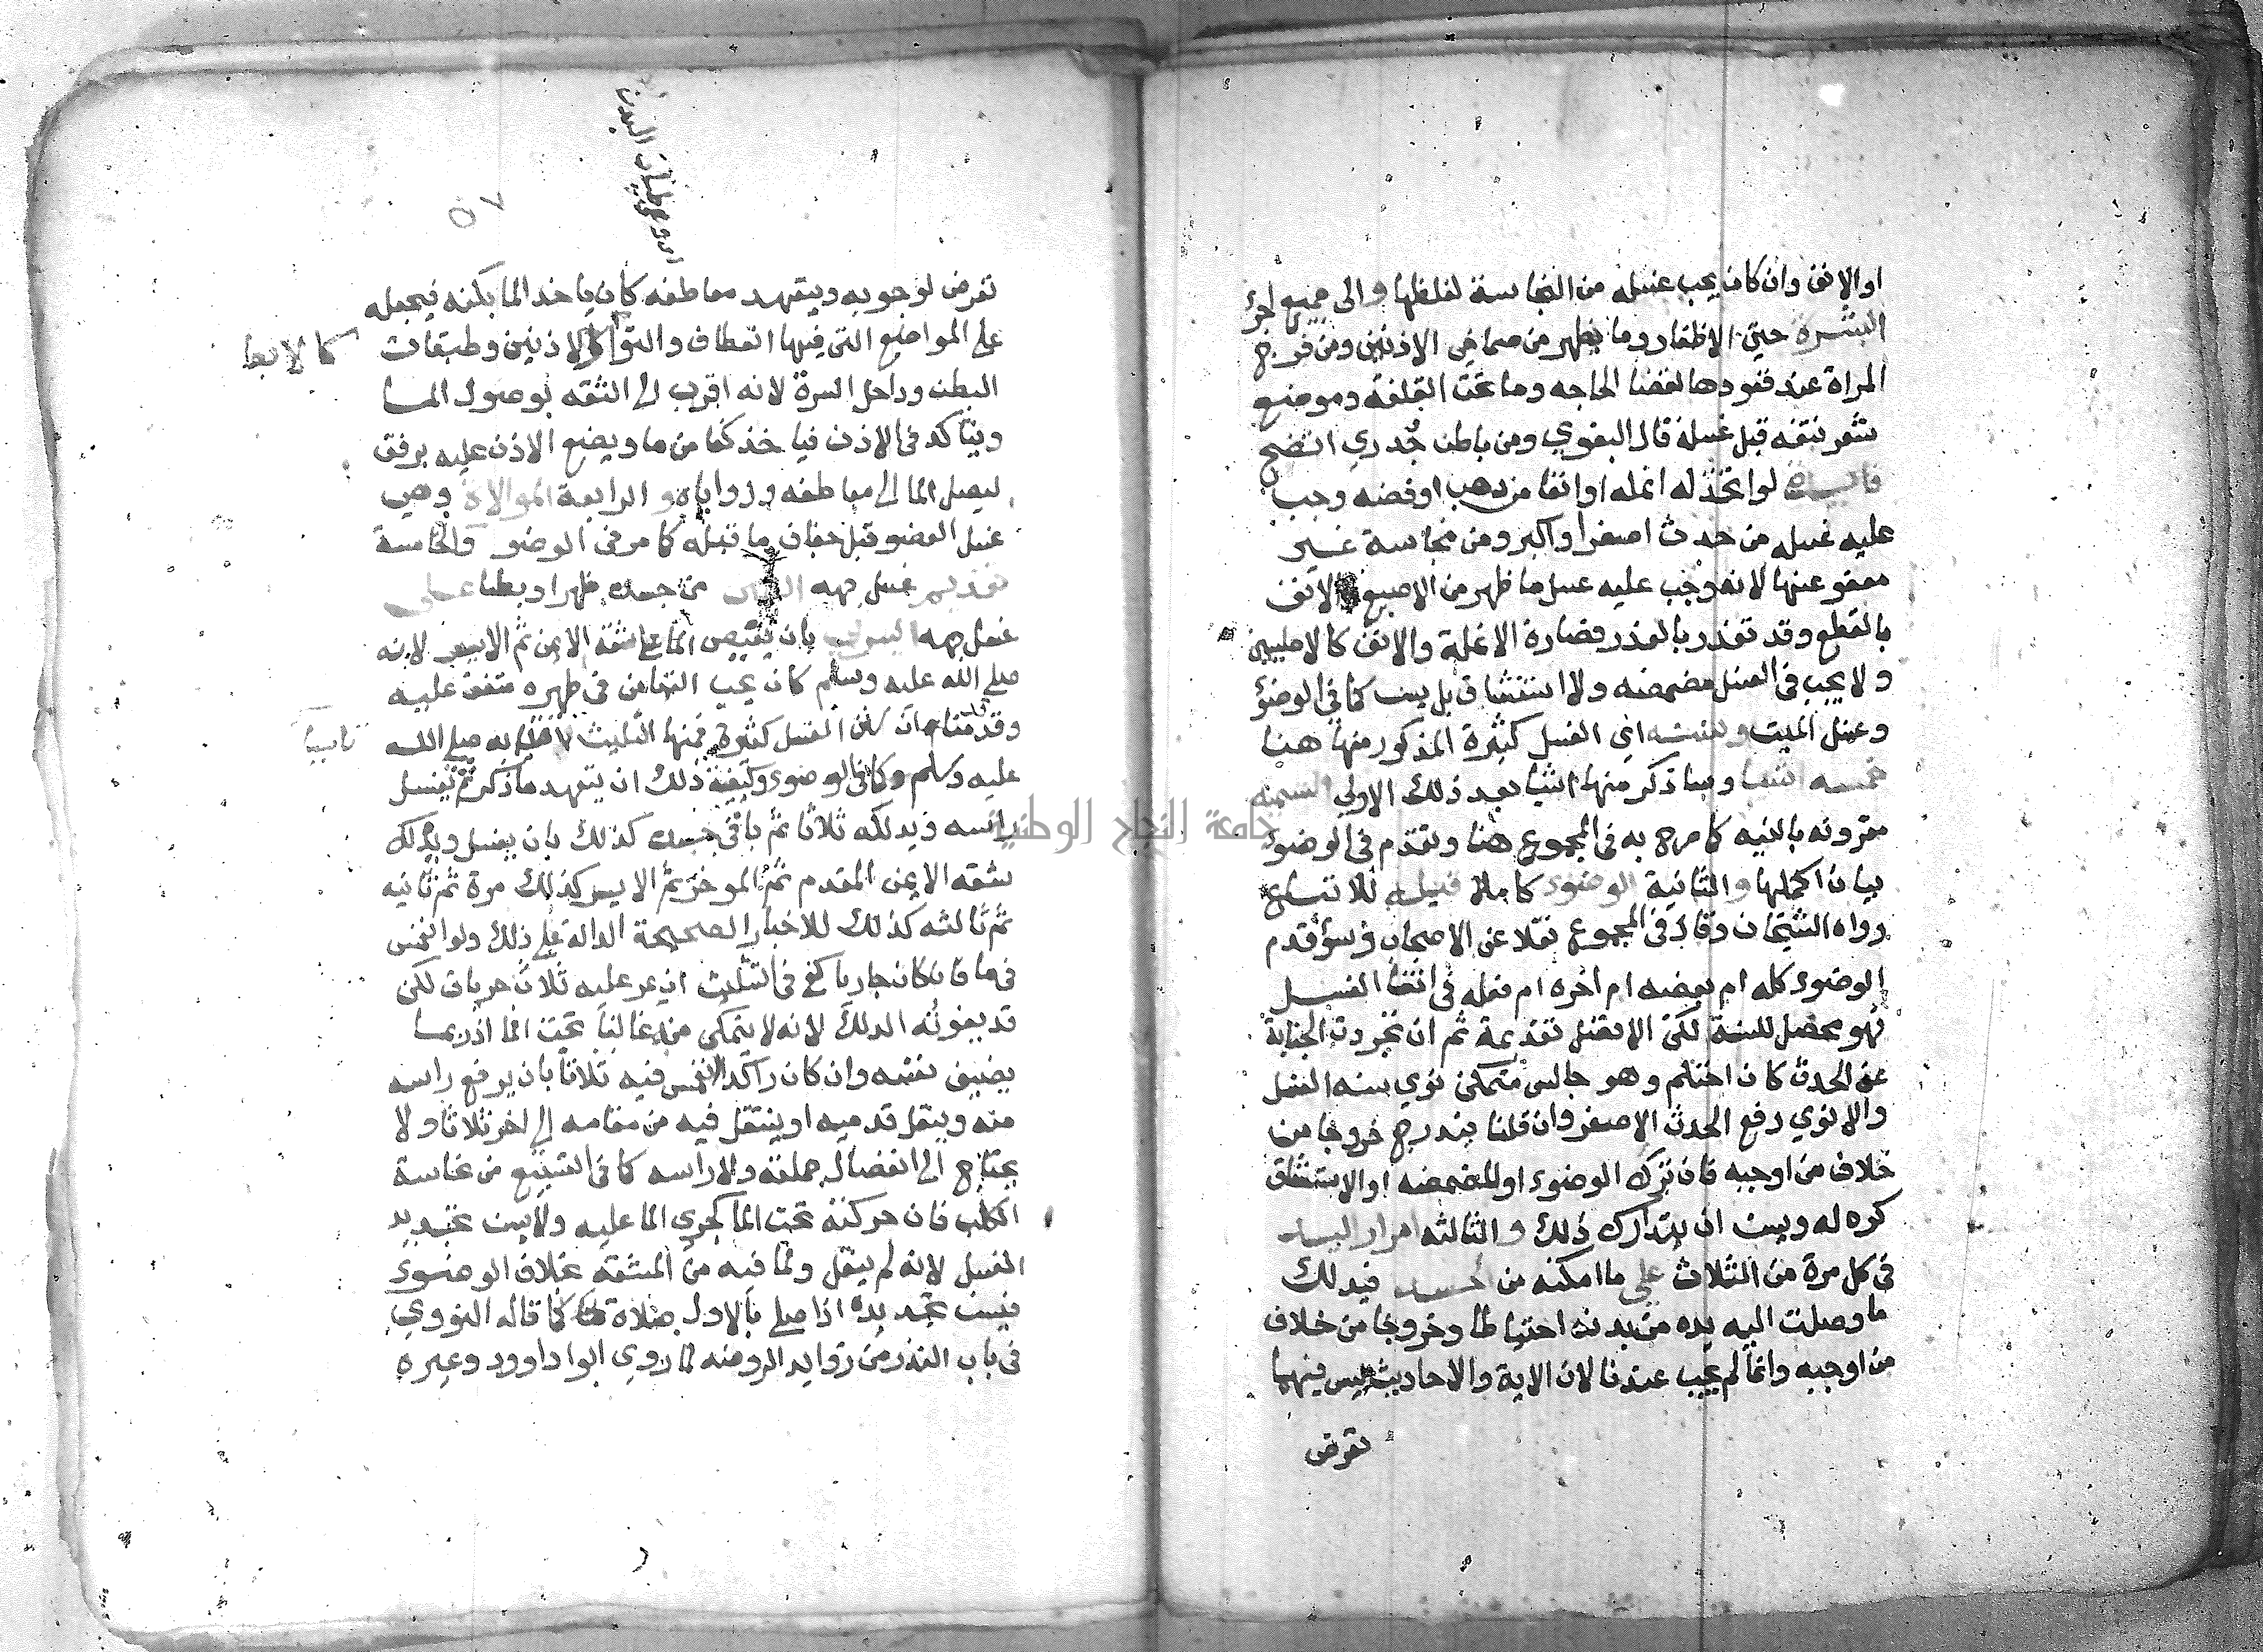 او الانف وان كان يجب غسله من النجاسة لغلظها والى جميع اجزا
البشرة حتى الاظفار وما يظهر من صماخي الاذنين ومن فرج
المراة عند قعودها لقضا الحاجه وما تحت القلفة وموضع
شعر نتفه قبل غسله قال البغوي ومن باطن جُدري اتضح
لو اتخذ له انمله او انفا من ذهب او فضه وجب
عليه غسله من حدث اصغر او اكبر ومن نجاسة غير
معفو عنها لانه وجب عليه غسل ما ظهر من الاصبع والانف
بالقطع وقد تعذر بالعذر فصارة الانملة والانف كالاصليين
ولا يجب في الغسل مضمضه ولا استنشاق بل يسن كما في الوضؤ
وغسل الميت وسننه اي الغسل كثيرة المذكور منها هنا
خمسه اشيا وساذكر منها اشيا بعد ذلك الاولي التسميه
مقرونه بالنيه كما صرح به في المجموع هنا وتقدم في الوضوء
بيان اكملها والثانية الوضوء كاملا قبله للاتباع
رواه الشيخان وقال في المجموع نقلا عن الاصحاب وسؤ قدم
الوضوء كله ام بعضه ام اخره ام فعله في اثنا الغسل
فهو محصل للسنة لكن الافضل تقديمه ثم ان تجردت الجنابة
عن الحدث كان احتلم وهو جالس متمكن نوي سنه الغسل
والا نوي رفع الحدث الاصغر وان قلنا يندرج خروجا من
خلاف من اوجبه فان ترك الوضوء او المضمضه او الاستنشاق
كره له ويسن ان يتدارك ذلك والثالثه امرار اليد
في كل مرة من الثلاث على ما امكنه من الجسد فيدلك
ما وصلت اليه يده من بدنه احتياطا وخروجا من خلاف
من اوجبه وانما لم يجب عندنا لان الاية والاحاديث ليس فيهما
تعرض
٥٧
تعرض لوجوبه ويتعهد معاطفه كان ياخذ الما بكفه فيجعله
على المواضع التي فيها انعطاف والتوا كالاذنين وطبقات
كالابط
البطن وداخل السرة لانه اقرب الى الثقه بوصول الما
ويتاكد في الاذن فياخذ كفا من ما ويضع الاذن عليه برفق
ليصل الما الى معاطفه وزواياه والرابعة الموالاة وهي
غسل العضو قبل جفاف ما قبله كما مر في الوضو والخامسة
تقديم غسل جهه اليمين من جسده ظهرا وبطنا على
غسل جهه اليسرى بان يفيض الما على شقه الايمن ثم الايسر لانه
صلى الله عليه وسلم كان يحب التيامن في طهره متفق عليه
وقدمنا ان سنن الغسل كثيرة فمنها التثليث تاسيا به صلى الله
تاسيا
عليه وسلم وكما في الوضوء وكيفية ذلك ان يتعهد ما ذكر ثم يغسل
راسه ويدلكه ثلاثا ثم باقي جسده كذلك بان يغسل ويدلك
شقه الايمن المقدم ثم الموخر ثم الايسر كذلك مرة ثم ثانيه
ثم ثالثه كذلك للاخبار الصحيحة الدالة على ذلك ولو انغمس
في ما فان كان جاريا كفي في التثليث ان يمر عليه ثلاث جريات لكن
قد يفوته الدلك لانه لا يتمكن منه غالبا تحت الما اذ ربما
يضيق نفسه وان كان راكدا انغمس فيه ثلاثا بان يرفع راسه
منه وينقل قدميه او ينتقل فيه من مقامه الى اخر ثلاثا ولا
يحتاج الى انفصال جملته ولا راسه كما في التسبيع من نجاسة
الكلب فان حركته تحت الما كجري الما عليه ولا يسن تجديد
الغسل لانه لم ينقل ولما فيه من المشقه بخلاف الوضوء
فيسن تجديده اذا صلي بالاول صلاة ما كما قاله النووي
في باب النذر من زوايد الروضه لما روي ابوا داوود وغيره
جامعة النجاح الوطنية